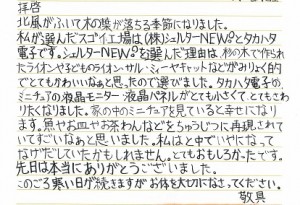 拝啓
北風がふいて木の葉が落ちる季節になりました。
私が選んだスゴイ工場は(株)シェルターNEWºとタカハタ
電子です。シェルターNEWºを選んだ理由は、杉の木で作られ
たライオンや子どものライオン・サル・ミーヤキャットなどがみりょく的
でとてもかわいいなぁと思ったので選びました。タカハタ電子の、ミ
ニチュアの液晶モニター・液晶パネルがとても小さくて、とてもさわ
りたくなりました。家の中のミニチュアを見ていると幸せになりま
す。魚やお皿やお茶わんなどをちゅうじつに再現されて
いてすごいなぁと思いました。私はと中でいやになって
なげだしていたかもしれません。とてもおもしろかったです。
先日は本当にありがとうございました。
このごろ寒い日が続きますがお体を大切になさってください。
敬具